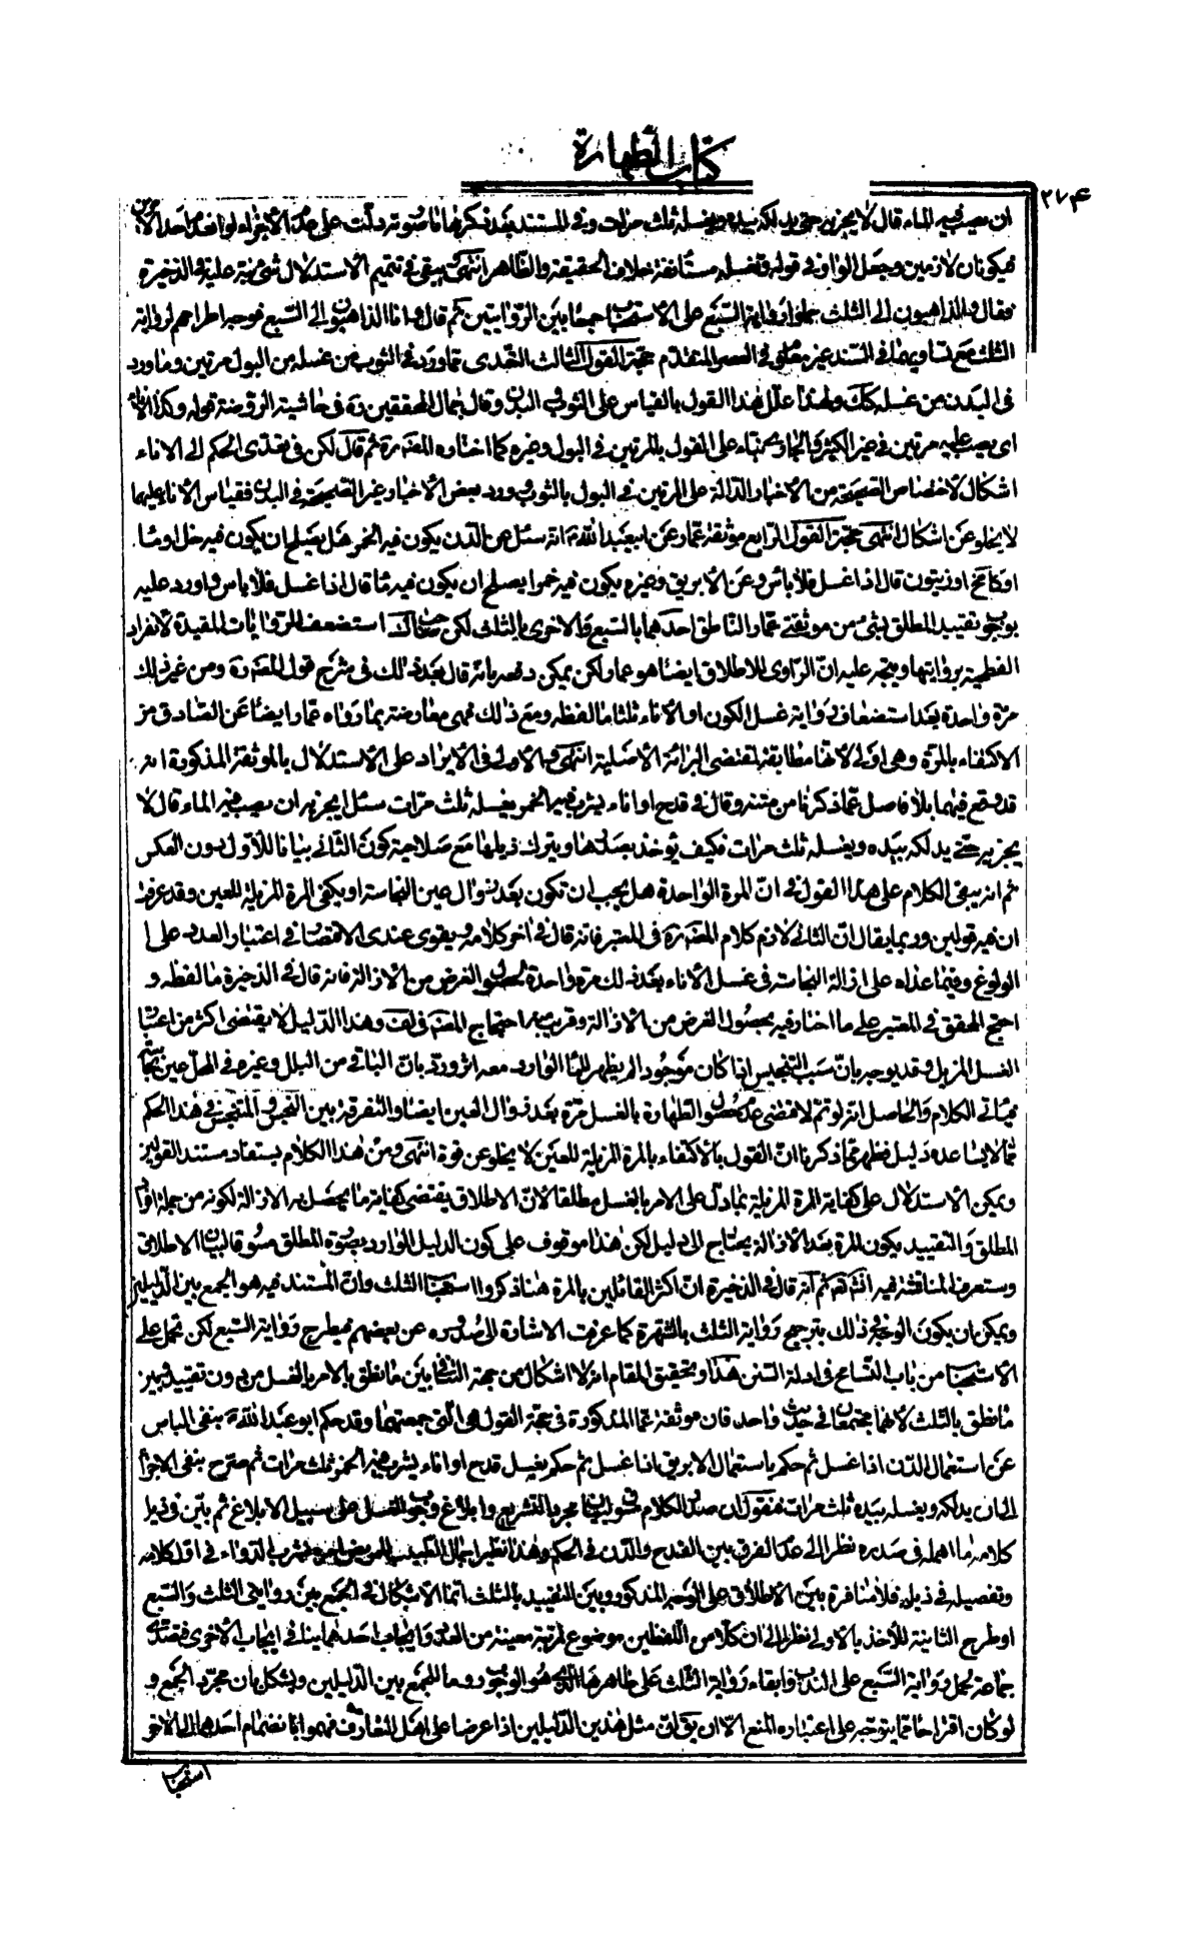 كتاب الطهارة
٢٧۴
ان يصب فيه الماء قال لا يجزيه حتى يدلكه بيده ويغسله ثلث مرات وفى المستند بعد ذكرها ما صورته دلت على عدم الأجزاء لو انتفى احد الأمرين
فيكونان لازمين وجعل الواو في قوله ويغسله مستأنفة خلاف الحقيقة والظاهر انتهى بقى فى تتميم الاستدلال شئ نبه عليه فى الذخيرة
فقال والذاهبون الى الثلث حملوا رواية السبع على الأستحباب جمعا بين الروايتين ثم قال واما الذاهبون الى السبع فوجه اطراحهم لرواية
الثلث مع تساويهما فى السند غير معلوم حجة القول الثالث التعدى مما ورد فى الثوب من غسله من البول مرتين وما ورد
فى البدن من غسله كك ولهذا علل هذا القول بالقياس على الثوب والبدن وقال جمال المحققين ره فى حاشية الروضة قوله وكذا الاناء
اى يصب عليه مرتين فى غير الكثير والجارى بناء على القول بالمرتين فى البول وغيره كما اختاره المصنف ره ثم قال لكن فى تعدى الحكم الى الاناء
اشكال لاختصاص الصحيحة من الأخبار الدالة على المرتين فى البول بالثوب وورود بعض الأخبار غير الصحيحة فى البدن فقياس الاناء عليهما
لا يخلو عن اشكال انتهى حجة القول الرابع موثقة عمار عن ابيعبد الله ع انه سئل عن الدن يكون فيه الخمر هل يصلح ان يكون فيه خل او ماء
او كامخ او زيتون قال اذا غسل فلا بأس وعن الأبريق وغيره يكون فيه خمر ايصلح ان يكون فيه ماء قال اذا غسل فلا باس واورد عليه
بوجوب تقييد المطلق بشئ من موثقتى عمار الناطق احدهما بالسبع والاخرى بالثلث لكن صاحب لك استضعف الروايات المقيدة لانفراد
الفطحية بروايتها ويتجه عليه ان الراوى للاطلاق ايضا هو عمار ولكن يمكن دفعه بانه قال بعد ذلك فى شرح قول المصنف ره ومن غير ذلك
مرة واحدة بعد استضعاف رواية غسل الكوز او الأناء ثلثا ما لفظه ومع ذلك فهى معارضة بما رواه عمار ايضا عن الصادق من
الاكتفاء بالمرة وهى اولى لانها مطابقة لمقتضى البرائة الأصلية انتهى والأولى فى الأيراد على الأستدلال بالموثقة المذكورة انه
قد وقع فيها بلا فاصل عما ذكرنا من متنه وقال فى قدح او اناء يشرب فيه الخمر يغسله ثلث مرات سئل ايجزيه ان يصب فيه الماء قال لا
يجزيه حتى يدلكه بيده ويغسله ثلث مرات فكيف يؤخذ بصدرها ويترك ذيلها مع صلاحية كون الثانى بيانا للأول دون العكس
ثم انه يبقى الكلام على هذا القول فى ان المرة الواحدة هل يجب ان تكون بعد زوال عين النجاسة او يكفى المرة المزيلة للعين وقد عرفت
ان فيه قولين وربما يقال ان الثانى لازم كلام المصنف ره فى المعتبر فانه قال فى آخر كلامه ويقوى عندى الاقتصار فى اعتبار العدد على
الولوغ وفيما عداه على ازالة النجاسة فى غسل الأناء بعد ذلك مرة واحدة لحصول الغرض من الازالة فانه قال فى الذخيرة ما لفظه و
احتج المحقق فى المعتبر على ما اختاره بحصول الغرض من الازالة وقريب منه احتجاج المصنف فى لف وهذا الدليل لا يقتضى اكثر من اعتبار
الغسل المزيل وقد يوجه بان سبب التنجيس اذا كان موجودا لم يظهر للماء الوارد معه اثر ورد بان الباقى من البلل وغيره فى المحل حين
فياتى الكلام والحاصل انه لو تم لاقتضى عدم حصول الطهارة بالغسل مرة بعد زوال العين ايضا والتفرقة بين النجس والمتنجس فى هذا الحكم
مما لا يساعده دليل فظهر مما ذكرنا ان القول بالأكتفاء بالمرة المزيلة للعين لا يخلو عن قوة انتهى ومن هذا الكلام يستفاد مستند القولين
ويمكن الأستدلال على كفاية المرة المزيلة بما دل على الامر بالغسل مطلقا لان الاطلاق يقتضى كفاية ما يحصل به الازالة لكونه من جملة افراد
المطلق والتقييد بكون المرة بعد الأزالة يحتاج الى دليل لكن هذا موقوف على كون الدليل الوارد بصورة المطلق مسوقا لبيان الاطلاق
وستعرف المناقشة فيه انشاء الله تعالى ثم انه قال فى الذخيرة ان اكثر القائلين بالمرة هنا ذكروا استحباب الثلث وان المستند فيه هو الجمع بين الدليلين
ويمكن ان يكون الوجه فى ذلك بترجيح رواية الثلث بالشهرة كما عرفت الاشارة الى صدوره عن بعضهم فيطرح رواية السبع لكن تحمل على
الأستحباب من باب التسامح فى ادلة السنن هذا وتحقيق المقام انه لا اشكال من جهة التنافى بين ما نطق بالامر بالغسل من دون تقييد وبين
ما نطق بالثلث لانهما مجتمعان فى حديث واحد فان موثقة عمار المذكورة فى حجة القول هى التى جمعتهما وقد حكم ابو عبد الله ع بنفى الباس
عن استعمال الدن اذا غسل ثم حكم باستعمال الابريق اذا غسل ثم حكم بغسل قدح او اناء يشرب فيه الخمر ثلث مرات ثم صرح بنفى الاجزاء
الى ان يدلكه ويغسله بيده ثلث مرات فنقول ان صدر الكلام مسوق لبيان مجرد التشريع وابلاغ وجوب الغسل على سبيل الابلاغ ثم بين فى ذيل
كلامه ما اهمله فى صدره نظرا الى عدم الفرق بين القدح والدن فى الحكم وهذا نظير اجمال الطبيب للمريض امره بشرب الدواء فى اول كلامه
وتفصيله فى ذيله فلا منافرة بين الاطلاق على الوجه المذكور وبين التقييد بالثلث انما الاشكال فى الجمع بين روايتى الثلث والسبع
او طرح الثانية للأخذ بالاولى نظرا الى ان كلا من اللفظين موضوع لمرتبة معينة من العدد وايجاب احدهما ينافى ايجاب الأخرى فتصدى
جماعة لحمل رواية السبع على الندب وابقاء رواية الثلث على ظاهرها الذى هو الوجوب روما للجمع بين الدليلين ويشكل بان مجرد الجمع و
لو كان اقتراحا مما يتوجه على اعتباره المنع الا ان يق ان مثل هذين الدليلين اذا عرضا على اهل التعارف فهموا بانضمام احدهما الى الاخر
استحباب